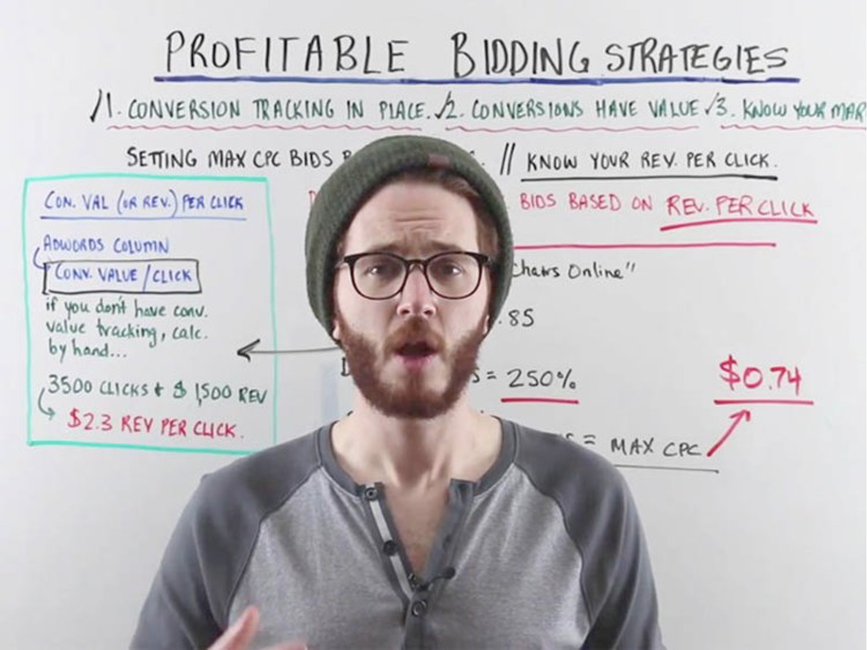 PROFITABLE BIDDING STRATEGIES
1. CONVERSION TRACKING IN PLACE. 2. CONVERSIONS HAVE VALUE 3. KNOW YOUR MAR
SETTING MAX CPC BIDS // KNOW YOUR REV. PER CLICK.
CON. VAL (OR REV.) PER CLICK
ADWORDS COLUMN
CONV. VALUE/CLICK
if you don't have conv.
value tracking, calc.
by hand...
3500 CLICKS + $ 1,500 REV
$2.3 REV PER CLICK.
BIDS BASED ON REV. PER CLICK
Chairs Online"
.85
= 250%
$0.74
= MAX CPC